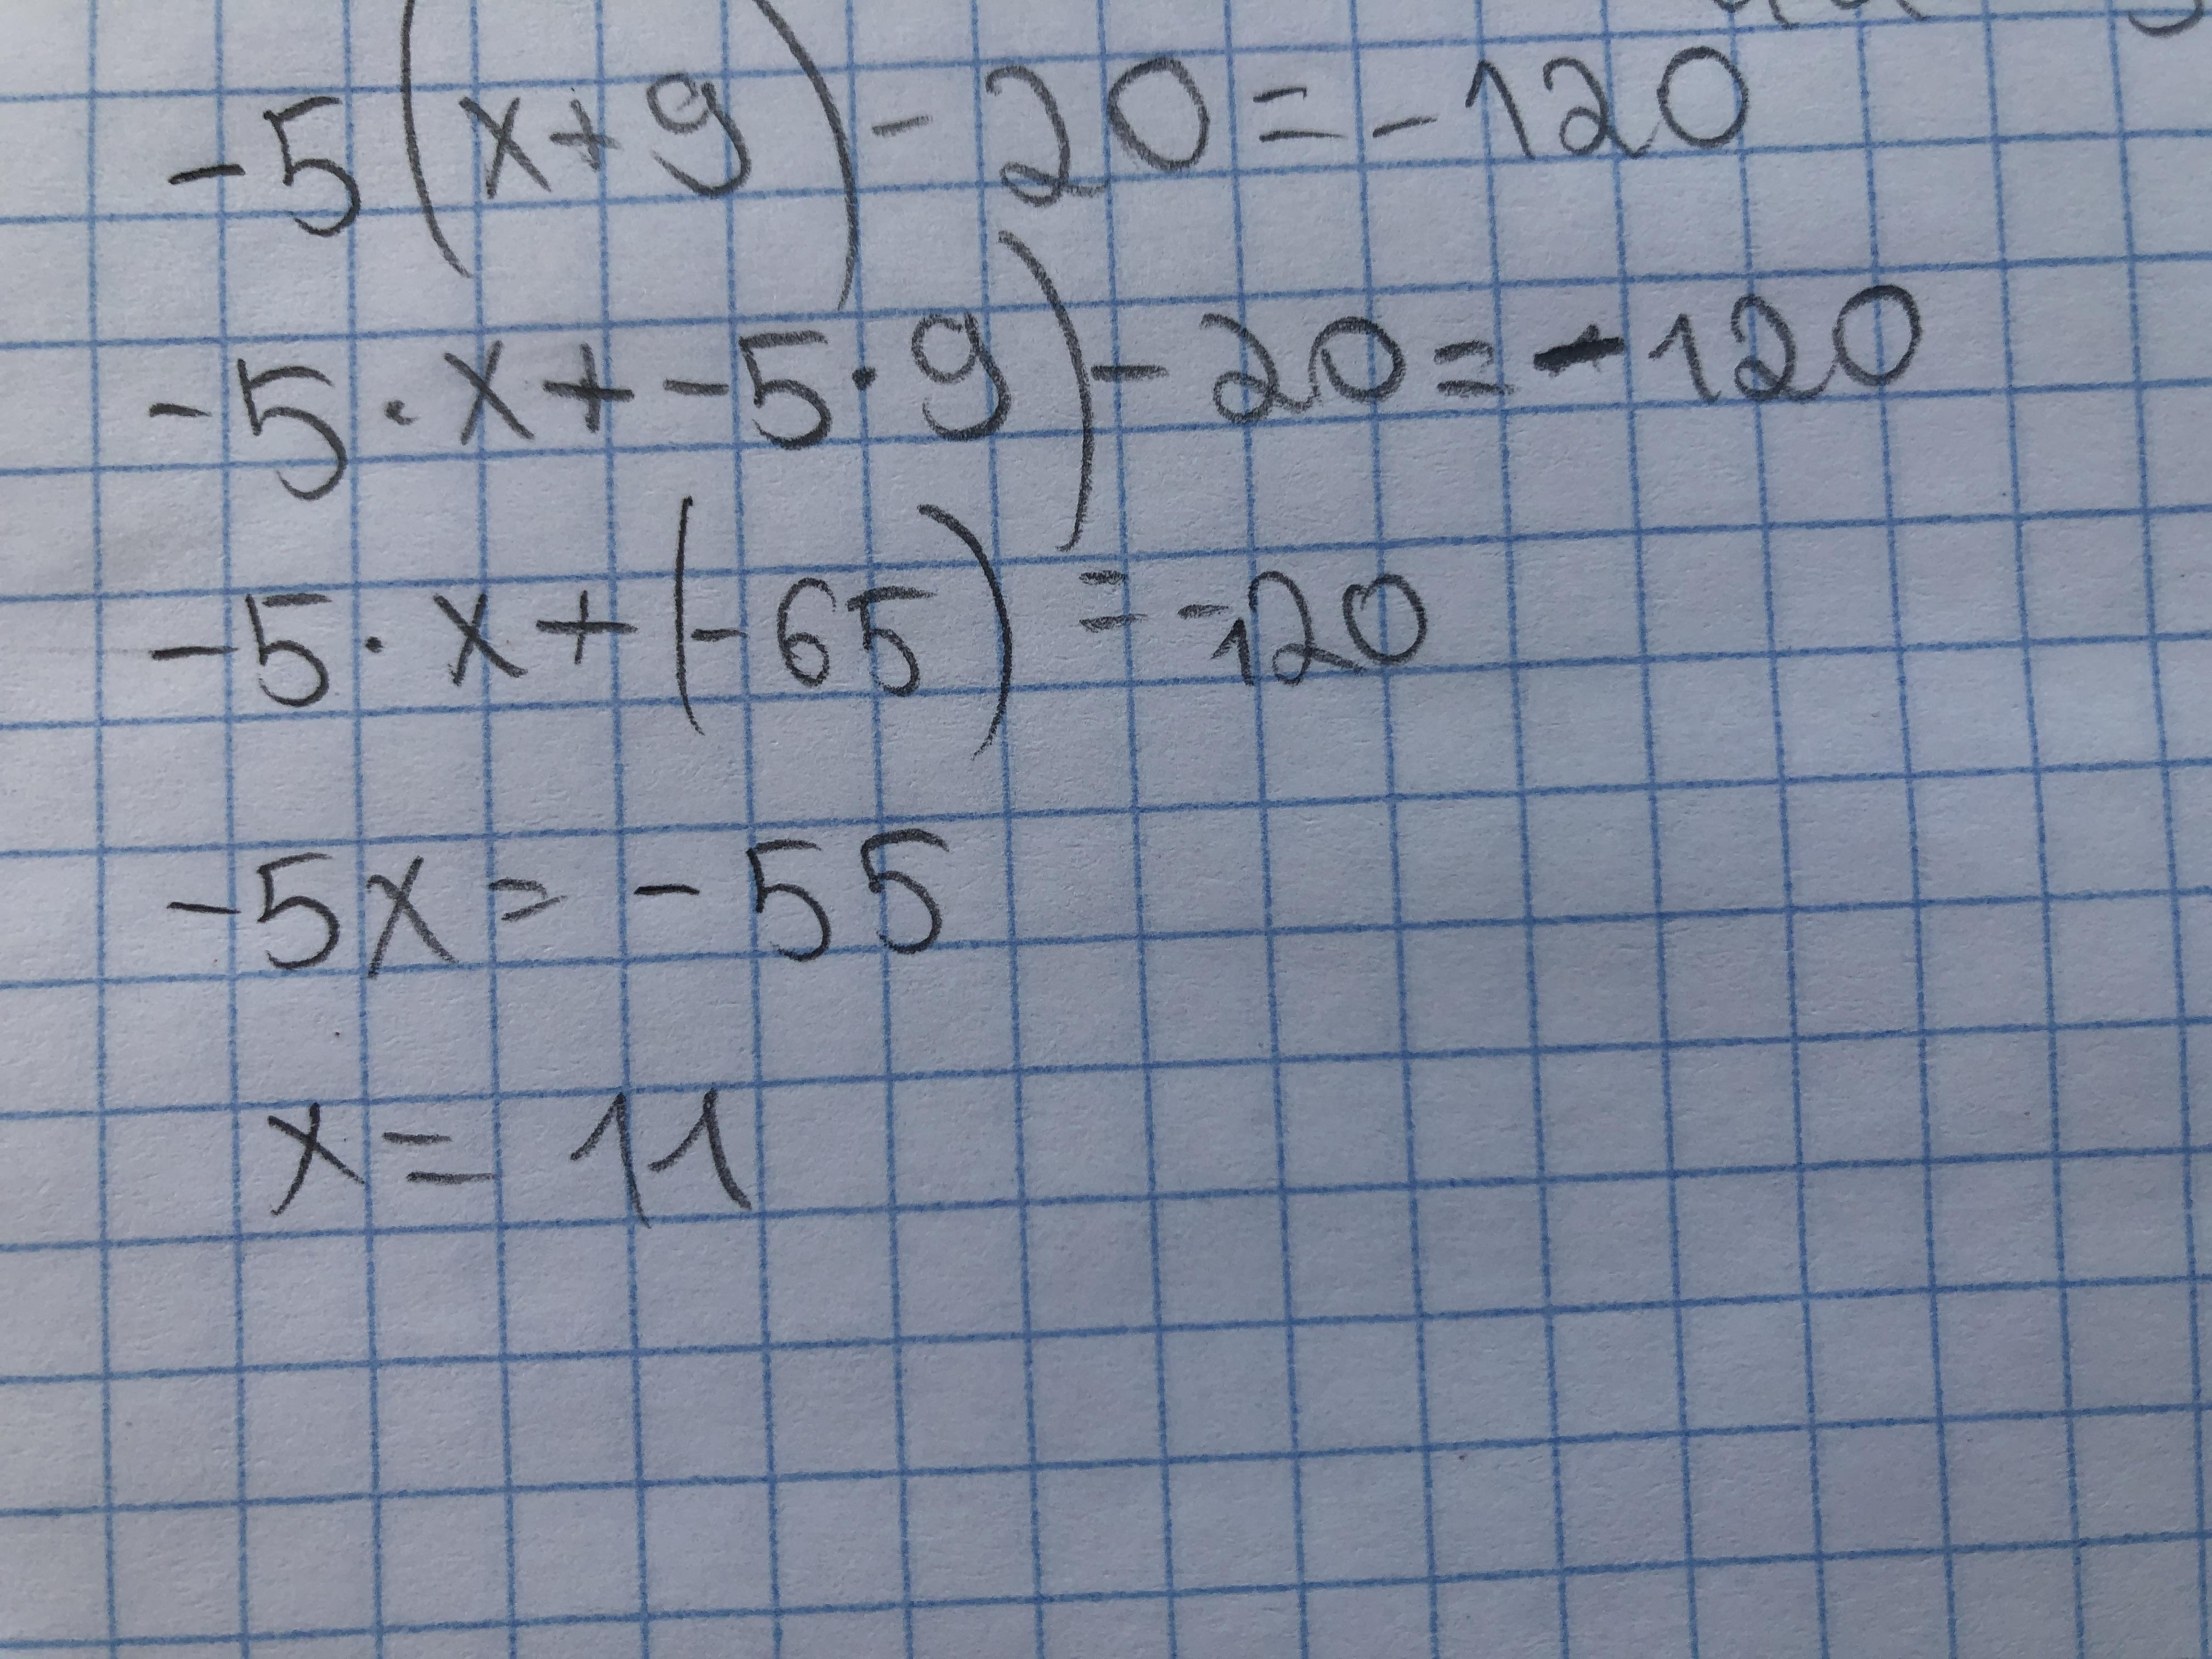 -5(x+9)-20=-120
-5·x+-5·9)-20=-120
-5·x+(-65)=-120
-5x=-55
x=11